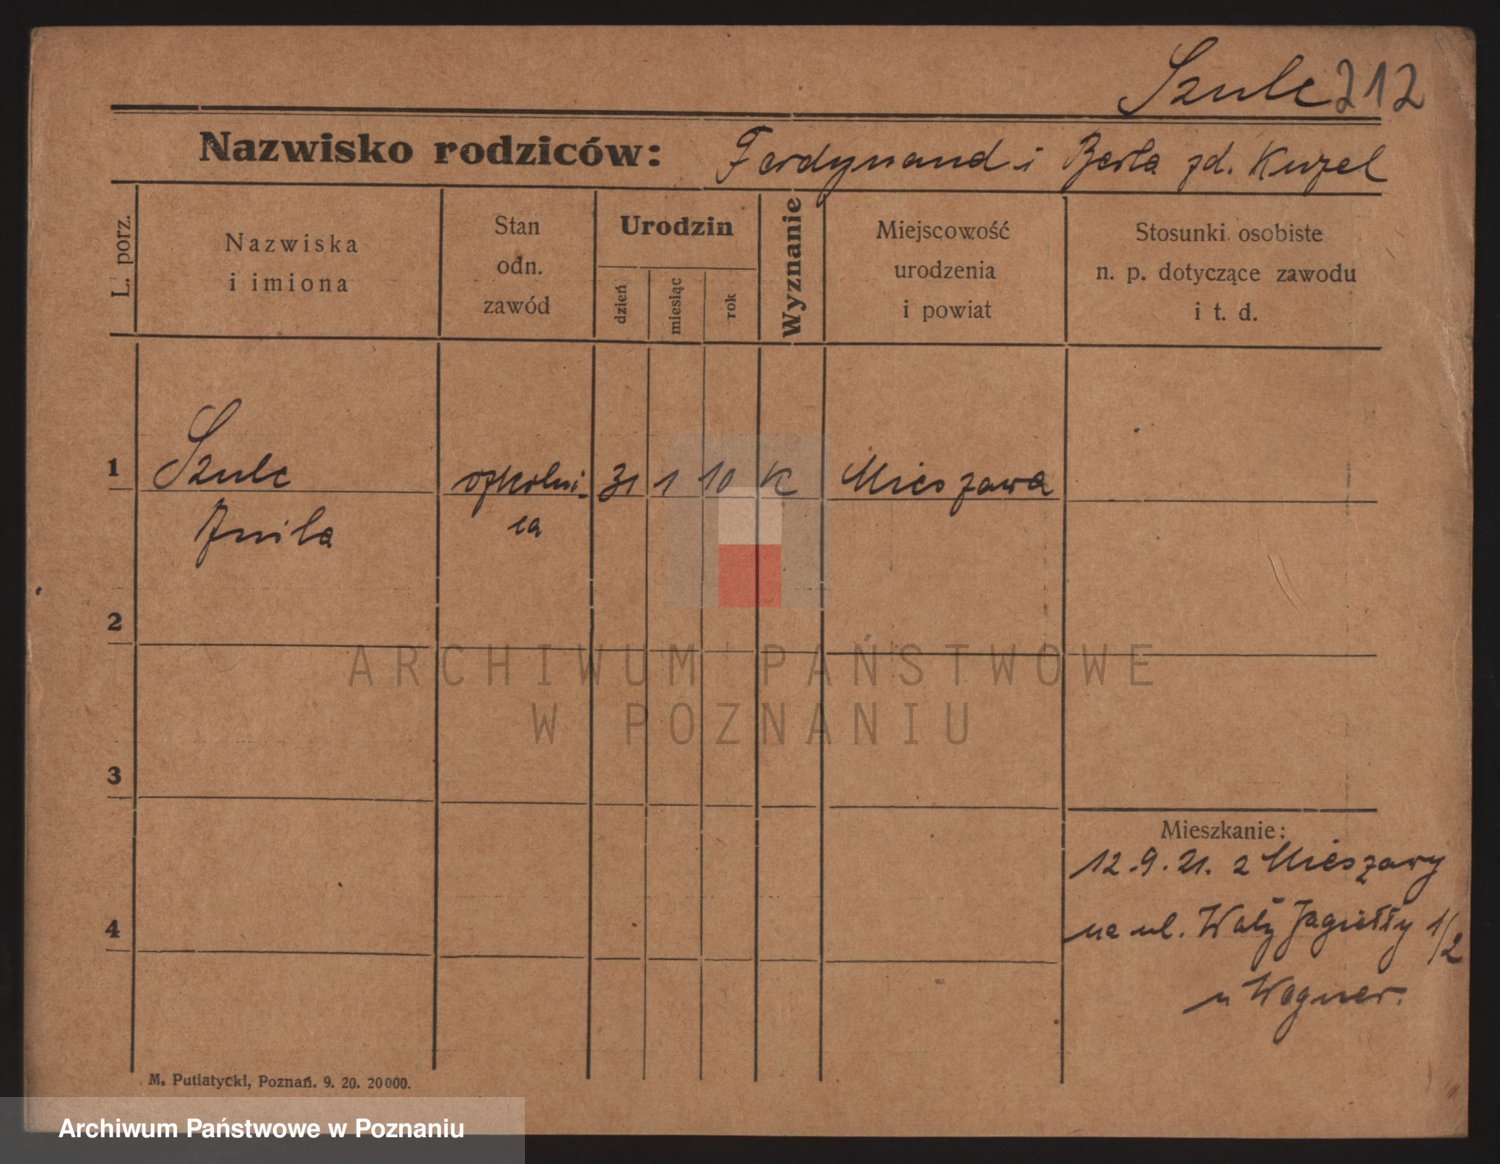 Szulc 212
Nazwisko rodziców: Ferdynand i Berta zd. Kuzel
L. porz.
Nazwiska
i imiona
Stan
odn.
zawód
Urodzin
dzień
miesiąc
rok
Wyznanie
Miejscowość
urodzenia
i powiat
Stosunki osobiste
n. p. dotyczące zawodu
i t. d.
1 Szulc 31 1 10 K Mieszawa
2
3
4
Mieszkanie:
12.9.21. z Mieszawy
na ul. Wały Jagiełły 1/2
u Wagner.
M. Putiatycki, Poznań. 9. 20. 20000.
ARCHIWUM PAŃSTWOWE
W POZNANIU
Archiwum Państwowe w Poznaniu